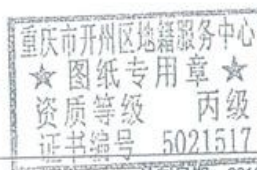 重庆市开州区地籍服务中心
★ 图纸专用章 ★
资质等级 丙级
证书编号 5021517